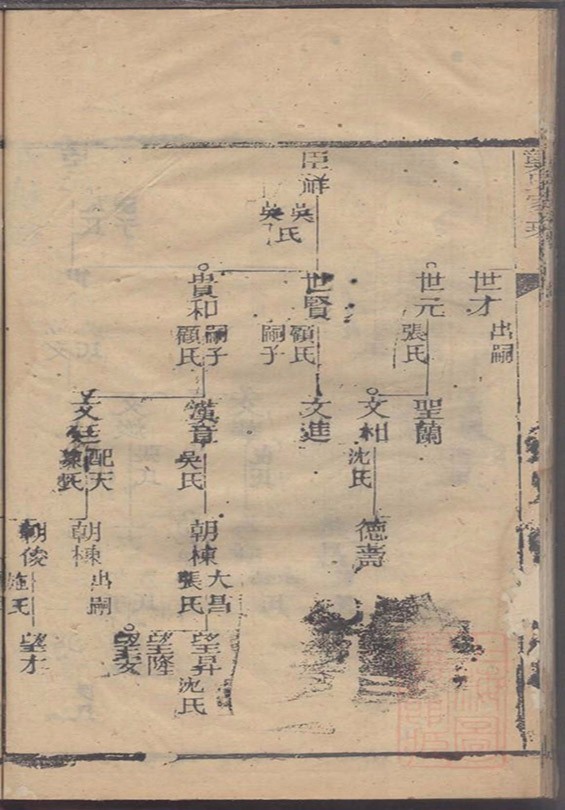 臣祥
吳氏
吳
世才
出嗣
世元
張氏
世賢
顧氏
嗣子
貴和
嗣子
顧氏
聖蘭
文和
沈氏
文進
漢章
吳氏
文廷
配天
陳氏
德壽
朝棟
大昌
張氏
朝棟
出嗣
朝俊
施氏
望昇
沈氏
望隆
望安
望才